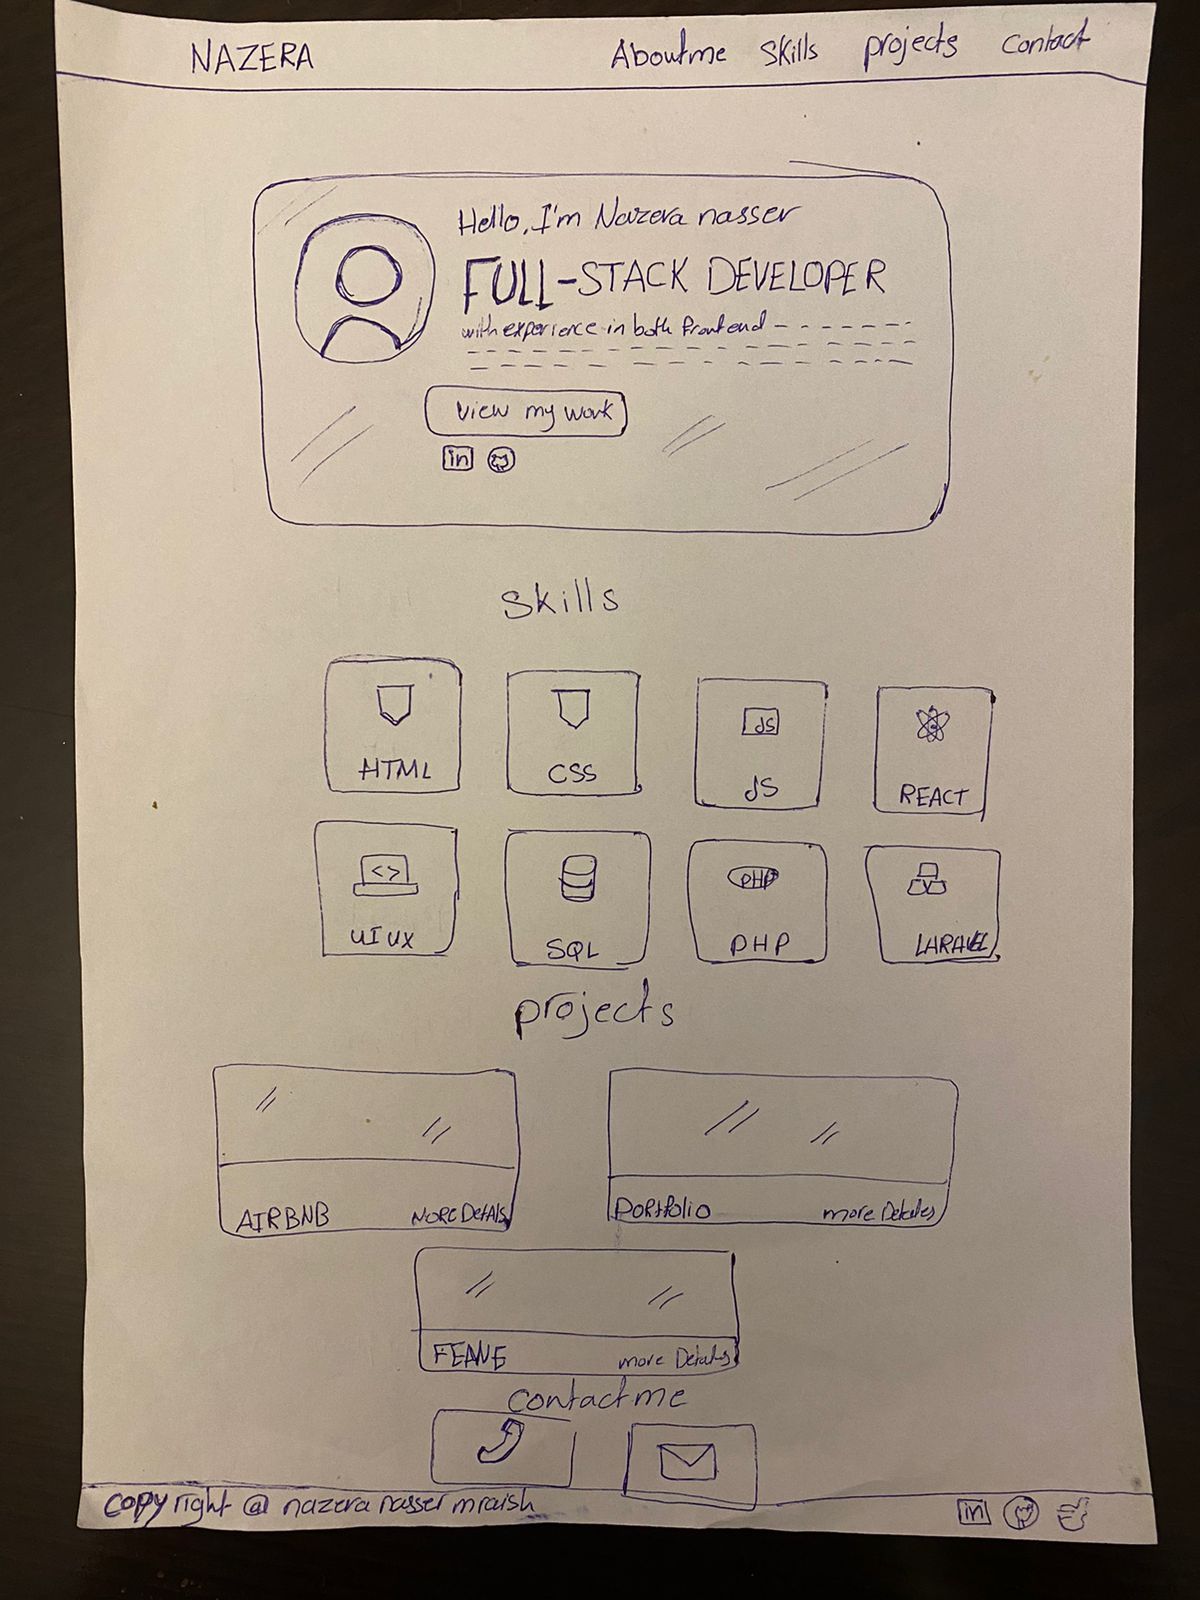 NAZERA Aboutme Skills projects Contact
Hello, I'm Nazera nasser
FULL-STACK DEVELOPER
with experience in both frontend
view my work
in
skills
HTML CSS JS JS REACT
UIUX SQL PHP PHP LARAVEL
<>
projects
AIRBNB MORE Details PORtfolio more Details
FEANE more Details
contactme
copyright @ nazera nasser mraish in